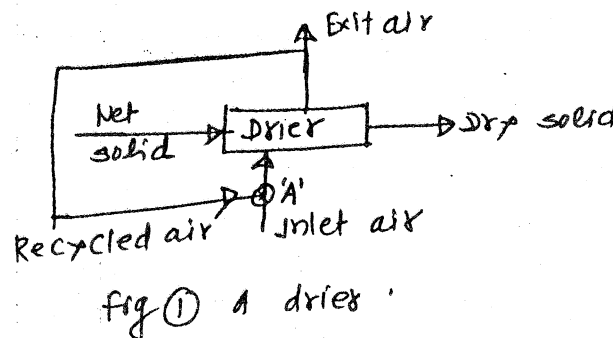 Exit air
Wet
solid
Drier
Dry solid
'A'
Recycled air
Inlet air
fig ① A drier.